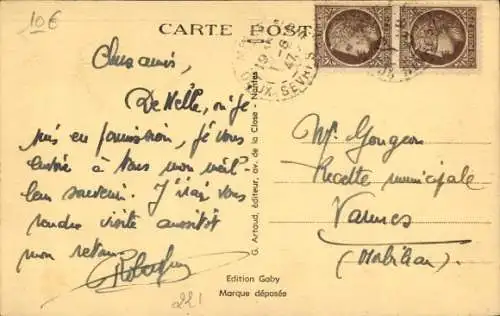 10€
CARTE POST
19
1-8
47
DEUX-SEVRES
Chers amis,
De Melle, où je
suis en permission, je vous
envoie à tous mon meil-
leur souvenir. J'irai vous
rendre visite aussitôt
mon retour
G. Artaud, éditeur, av. de la Close - Nantes
Mr Gougeon
Recette municipale
Vannes
(Morbihan)
Edition Gaby
Marque déposée
221